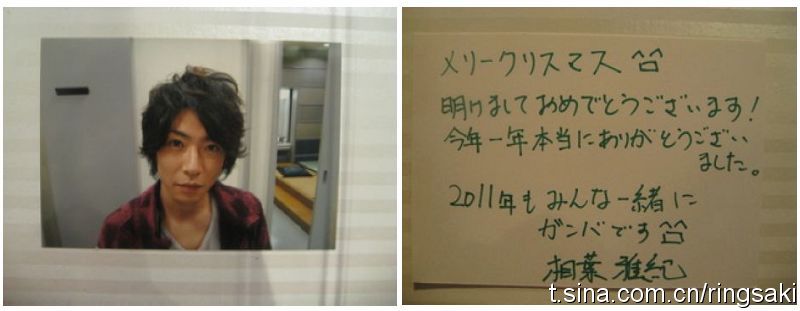 メリークリスマス
明けましておめでとうございます！
今年一年本当にありがとうござい
ました。
2011年もみんな一緒に
ガンバです
相葉雅紀
t.sina.com.cn/ringsaki